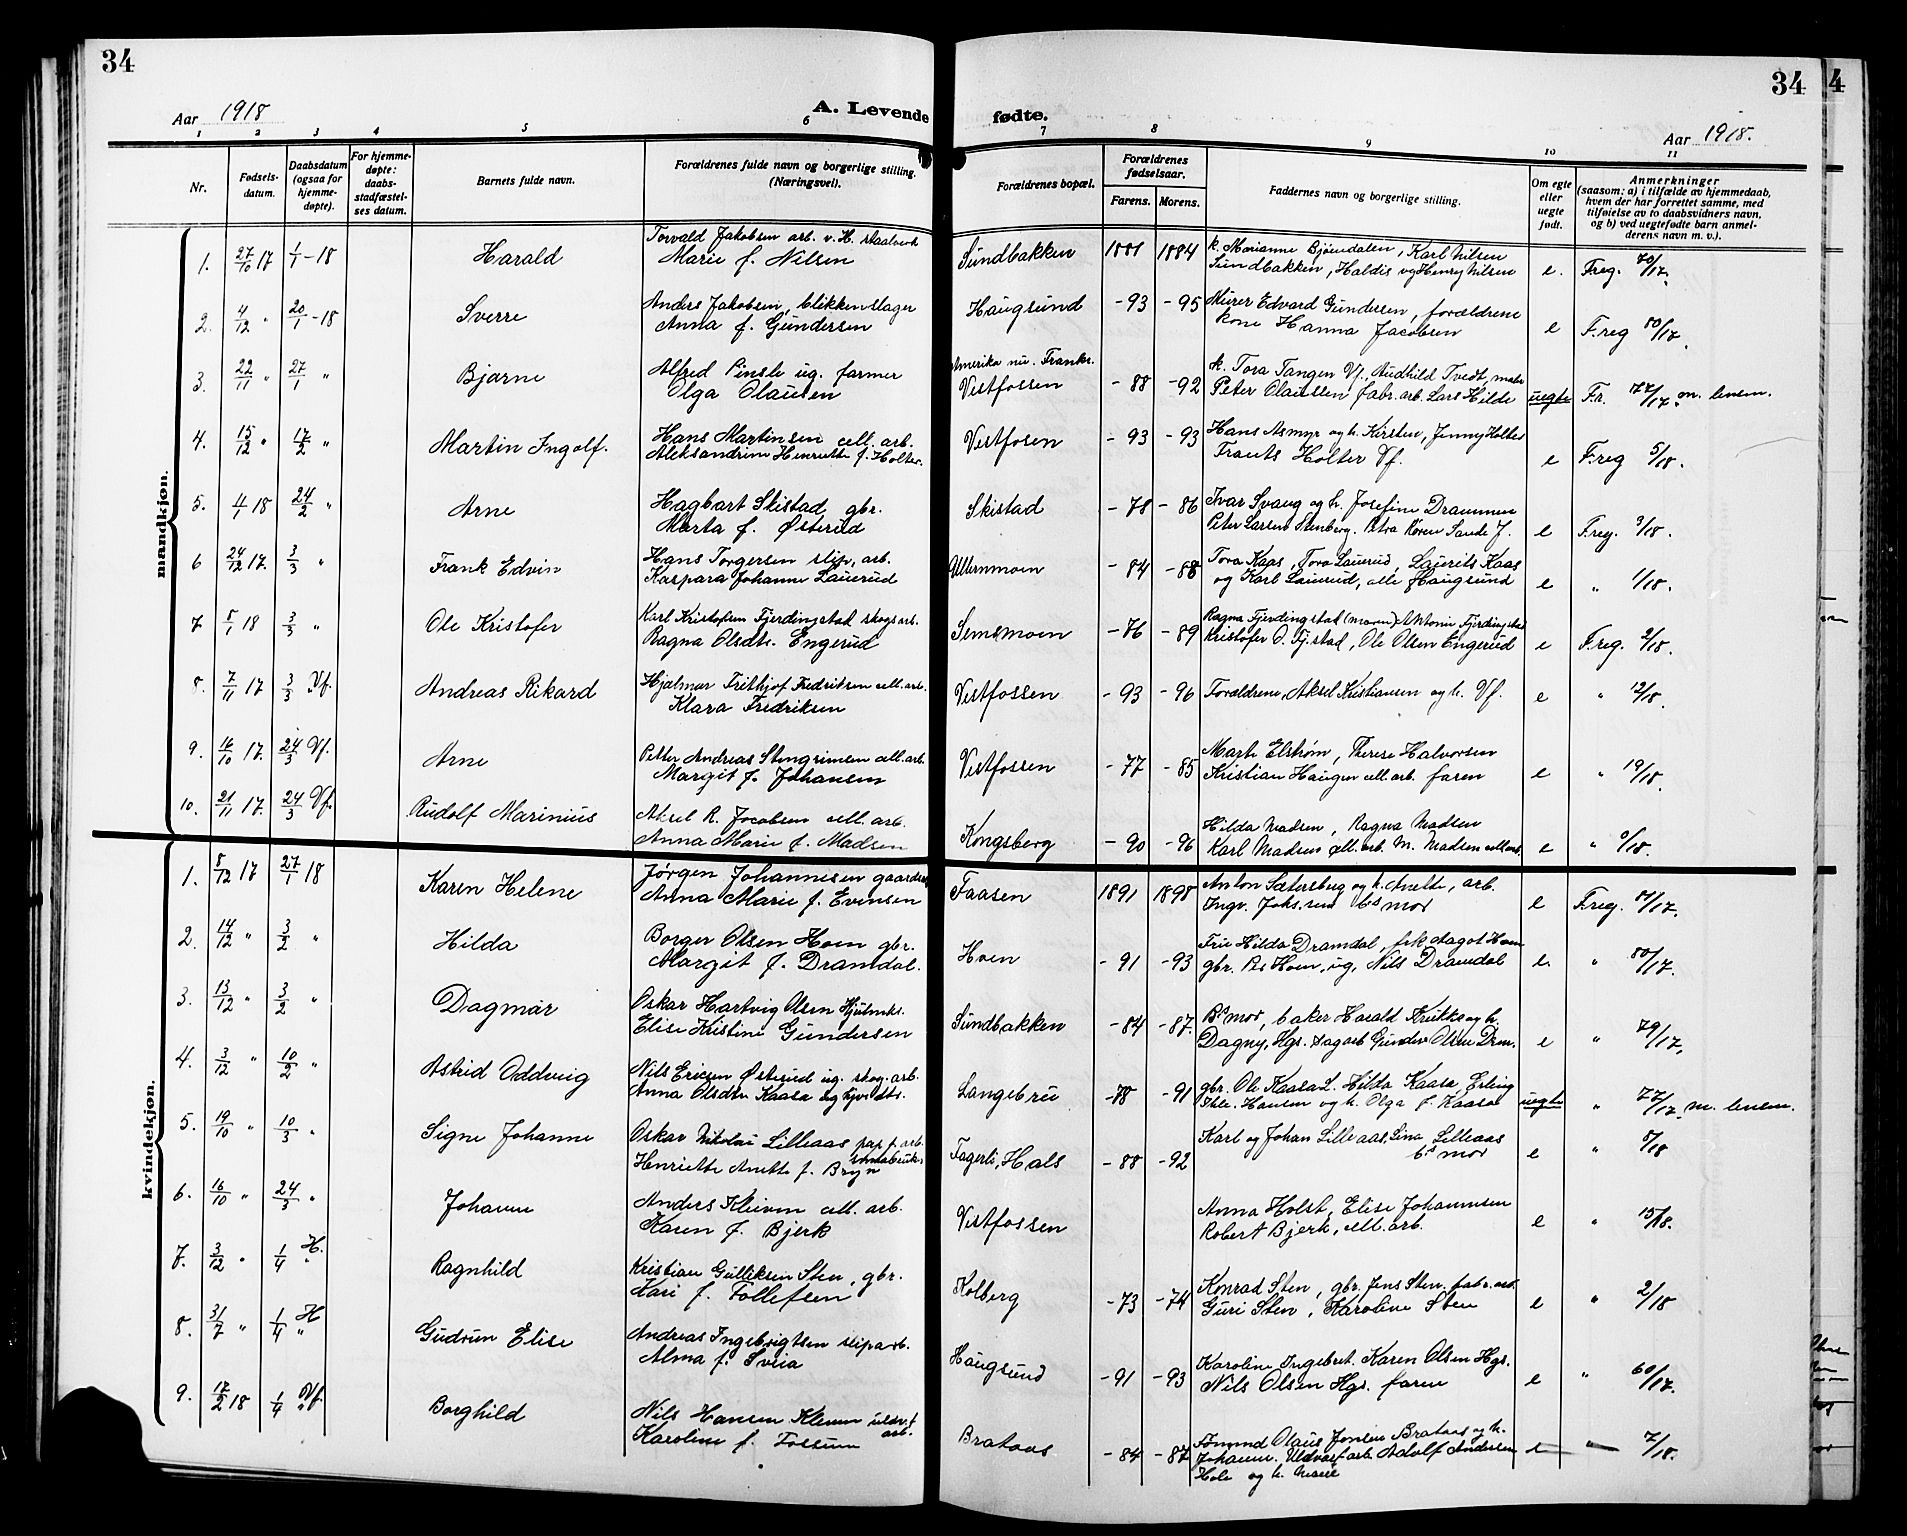 34
34
4
Aar 1918
A. Levende fødte.
Aar 1918.
1 2 3 4 5 6 7 8 9 10 11
Nr.
Fødselsdatum.
Daabsdatum (ogsaa for hjemmedøpte).
For hjemmedøpte: daabsstadfæstelses datum.
Barnets fulde navn.
Forældrenes fulde navn og borgerlige stilling. (Næringsvei).
Forældrenes bopæl.
Forældrenes fødselsaar.
Farens. Morens.
Faddernes navn og borgerlige stilling.
Om egte eller uegte født.
Anmerkninger
(saasom: a) i tilfælde av hjemmedaab,
hvem der har forrettet samme, med
tilføielse av to daabsvidners navn,
og b) ved uegtefødte barn anmelderens navn m. v.).
mandkjøn.
1. 27/10 17 1/1 -18 Harald Torvald Jakobsen arb. v. H. staalverk Sundbakken 1881 1884 k. Marianne Bjørndalen, Karl Nilsen e. Freg. 70/17.
Marie f. Nilsen Sundbakken, Haldis og Henry Nilsen
2. 4/12 " 20/1 -18 Sverre Anders Jakobsen, blikkenslager Haugsund -93 -95 Murer Edvard Gundersen, forældrene e F.reg 80/17.
Anna f. Gundersen kone Hanna Jacobsen
3. 22/11 " 27/1 " Bjarne Alfred Pinsle ug. farmer Amerika nu. Frankr. -88 -92 k. Tora Tangen Vf., Audhild Tvedt, uegte F.r. 77/17. m. lensm.
Olga Olausen Vestfossen Peter Olaussen fabr. arb. Lars Hilde
4. 15/12 " 17/2 " Martin Ingolf. Hans Martinsen cell. arb. Vestfosen -93 -93 Hans Asmyr og h. Kirsten, Jenny Holter e F.reg 5/18.
Aleksandrine Henriette f. Holter. Frants Holter Vf.
5. 4/1 18 24/2 " Arne Hagbart Skistad gbr. Skistad -78 -86 Ivar Svang og h. Josefine Drammen e F.reg. 3/18.
Marta f. Østerud Peter Larsen Stenberg. Petra Røren Sande J.
6 24/12 17. 3/3 " Frank Edvin Hans Torgersen slip. arb. Ullernmoen -84 -88 Tora Kaas, Tora Laurud, Laurits Kaas e " 1/18.
Kaspara Johanne Laurud og Karl Laurud, alle Haugsund
7 5/1 18 3/3 " Ole Kristofer Karl Kristofersen Fjerdingstad skogsarb. Semsmoen -76 -89 Ragna Fjerdingstad (moren) Antonie Fjerdingstad e F.reg. 2/18.
Ragna Olsdtr. Engerud Kristofer O. Fj.stad, Ole Olsen Engerud
8. 7/11 17 3/3 Vf. Andreas Rikard Hjalmar Frithjof Fredriksen cell. arb. Vestfossen -93 -96 Forældrene, Aksel Kristiansen og h. Vf. e " 12/18.
Klara Fredriksen
9. 16/10 17. 24/3 Vf. Arne Petter Andreas Stengrimsen cell. arb. Vestfossen -77 -85 Marte Elstrøm, Therese Halvorsen e " 19/18.
Margit f. Johansen Kristian Haugen cell. arb. faren
10. 21/11 17. 24/3 Vf. Rudolf Marinius Aksel R. Jacobsen cell. arb. Kongsberg -90 -96 Hilda Madsen, Ragna Madsen e " 9/18.
Anna Marie f. Madsen Karl Madsen cell. arb. M. Madsen cell. arb.
kvindekjøn.
1. 8/12 17 27/1 18 Karen Helene Jørgen Johannesen gaardsarb. Faasen 1891 1898 Anton Sætersberg og h. Anette, arb. e F.reg. 81/17.
Anna Marie f. Evensen Ingv. Johs.sen bs mor
2. 14/12 " 3/2 " Hilda Borger Olsen Hoen gbr. Hoen -91 -93 Frue Hilda Dramdal, frk Aagot Hoen e. " 80/17.
Margit f. Dramdal. gbr. Hoen, ug, Nils Dramdal
3. 13/12 " 3/2 " Dagmar Oskar Hartvig Olsen Hjulmk. Sundbakken -84 -87. Bs mor, baker Harald og h. e " 79/17.
Elise Kristine Gundersen Dagny, Hgs. dagarb Gunder Olsen Drm.
4. 3/12 " 10/2 " Astrid Oddveig Nils Ericsen Østerud ug. skog. arb. Langebru -78 -91 gbr. Ole Kaasa L. Hilda Kaasa, Erling uegte " 77/17. m. lensm.
Anna Olsdtr Kaasa ug tjen.dtr. Hansen og h. Olga f. Kaasa
5. 19/10 " 10/3 " Signe Johanne Oskar Nikolai Lilleaas pap. f. arb. Fagerli, Hals -88 -92 Karl og Johan Lilleaas, Lina Lilleaas e " 8/18
Henriette Anette f. Bryn bs mor
6. 16/10 " 24/3 " Johanne Anders Kleiven cell. arb. Vestfossen Anna Holst, Elise Johannesen e " 15/18.
Karen f. Bjerk Robert Bjerk, cell. arb.
7. 3/12 " 1/4 H. Ragnhild Kristian Gulliksen Sten, gbr. Kolberg -73 -74 Konrad Sten, gbr. Jens Sten. fabr. arb. e " 2/18
Kari f. Tollefsen Guri Sten, Karoline Sten
8. 31/7 " 1/4 H Gudrun Elise Andreas Ingebrigtsen sliparb. Haugsund -91 -93 Karoline Ingebret. Karen Olsen Hgs. e " 60/17.
Alma f. Sveia Nils Olsen Hgs. faren
9. 17/2 18 1/4 Vf. Borghild Nils Hansen Klemm uldv.f arb. Brataas -84 -87 Olaus Jensen Brataas og h. e — 7/18.
Karoline f. Fossum Johanne. Uldvarf. arb. Adolf Andersen
Hole og h. Marie